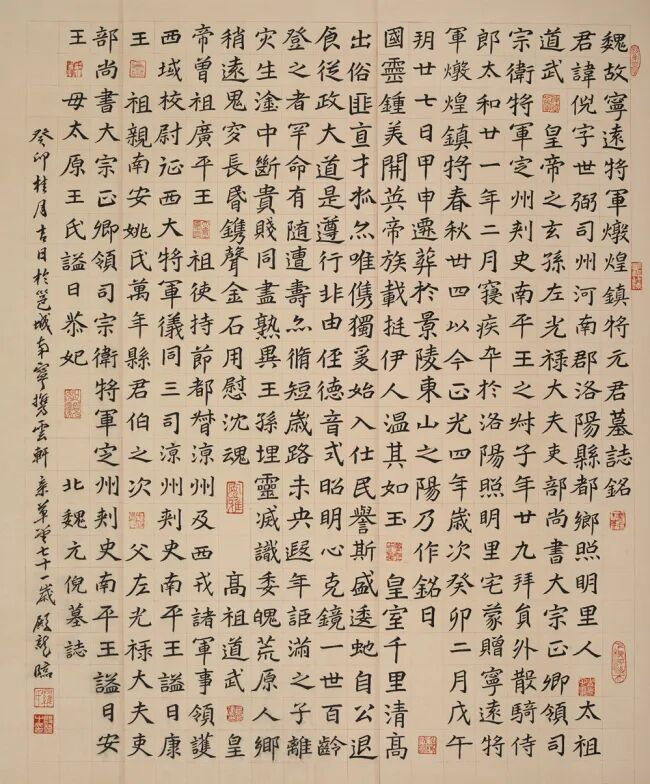 魏故寧遠將軍燉煌鎮將元君墓誌銘
君諱倪字世弼司州河南郡洛陽縣都鄉照明里人 太祖
道武 皇帝之玄孫左光祿大夫吏部尚書大宗正卿領司
宗衛將軍定州刺史南平王之叔子年廿九拜員外散騎侍
郎太和廿一年二月寢疾卒於洛陽照明里宅蒙贈寧遠將
軍燉煌鎮將春秋卅四以今正光四年歲次癸卯二月戊午
朔廿七日甲申遷葬於景陵東山之陽乃作銘曰
國靈鍾美開英帝族載挺伊人溫其如玉 皇室千里清高
出俗匪直才孤亦唯儁獨爰始入仕民譽斯盛逶虵自公退
食從政大道是遵行非由徑德音式昭明心克鏡一世百齡
登之者罕命有隨遭壽亦脩短歲路未央遐年詎滿之子離
灾生淦中斷貴賤同盡熟異王孫埋靈滅識委魄荒原人鄉
稍遠鬼穸長昏鐫聲金石用慰沈魂 高祖道武 皇
帝曾祖廣平王 祖使持節都督涼州及西戎諸軍事領護
西域校尉征西大將軍儀同三司涼州刺史南平王謚曰康
王 祖親南安姚氏萬年縣君伯之次 父左光祿大夫吏
部尚書大宗正卿領司宗衛將軍定州刺史南平王謚曰安
王 母太原王氏謚曰恭妃 北魏元倪墓誌
癸卯桂月吉日於邕城南寧携雲軒 草堂七十一歲 龍臨